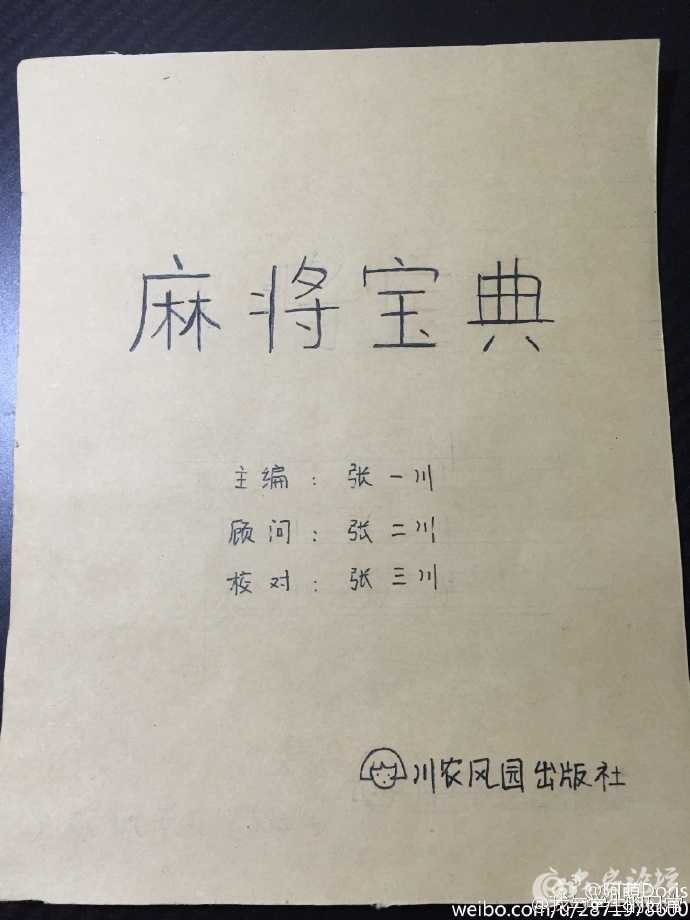 麻将宝典
主编：张一川
顾问：张二川
校对：张三川
川农风园出版社
@阿萌Doris
weibo.com/u/2871978600